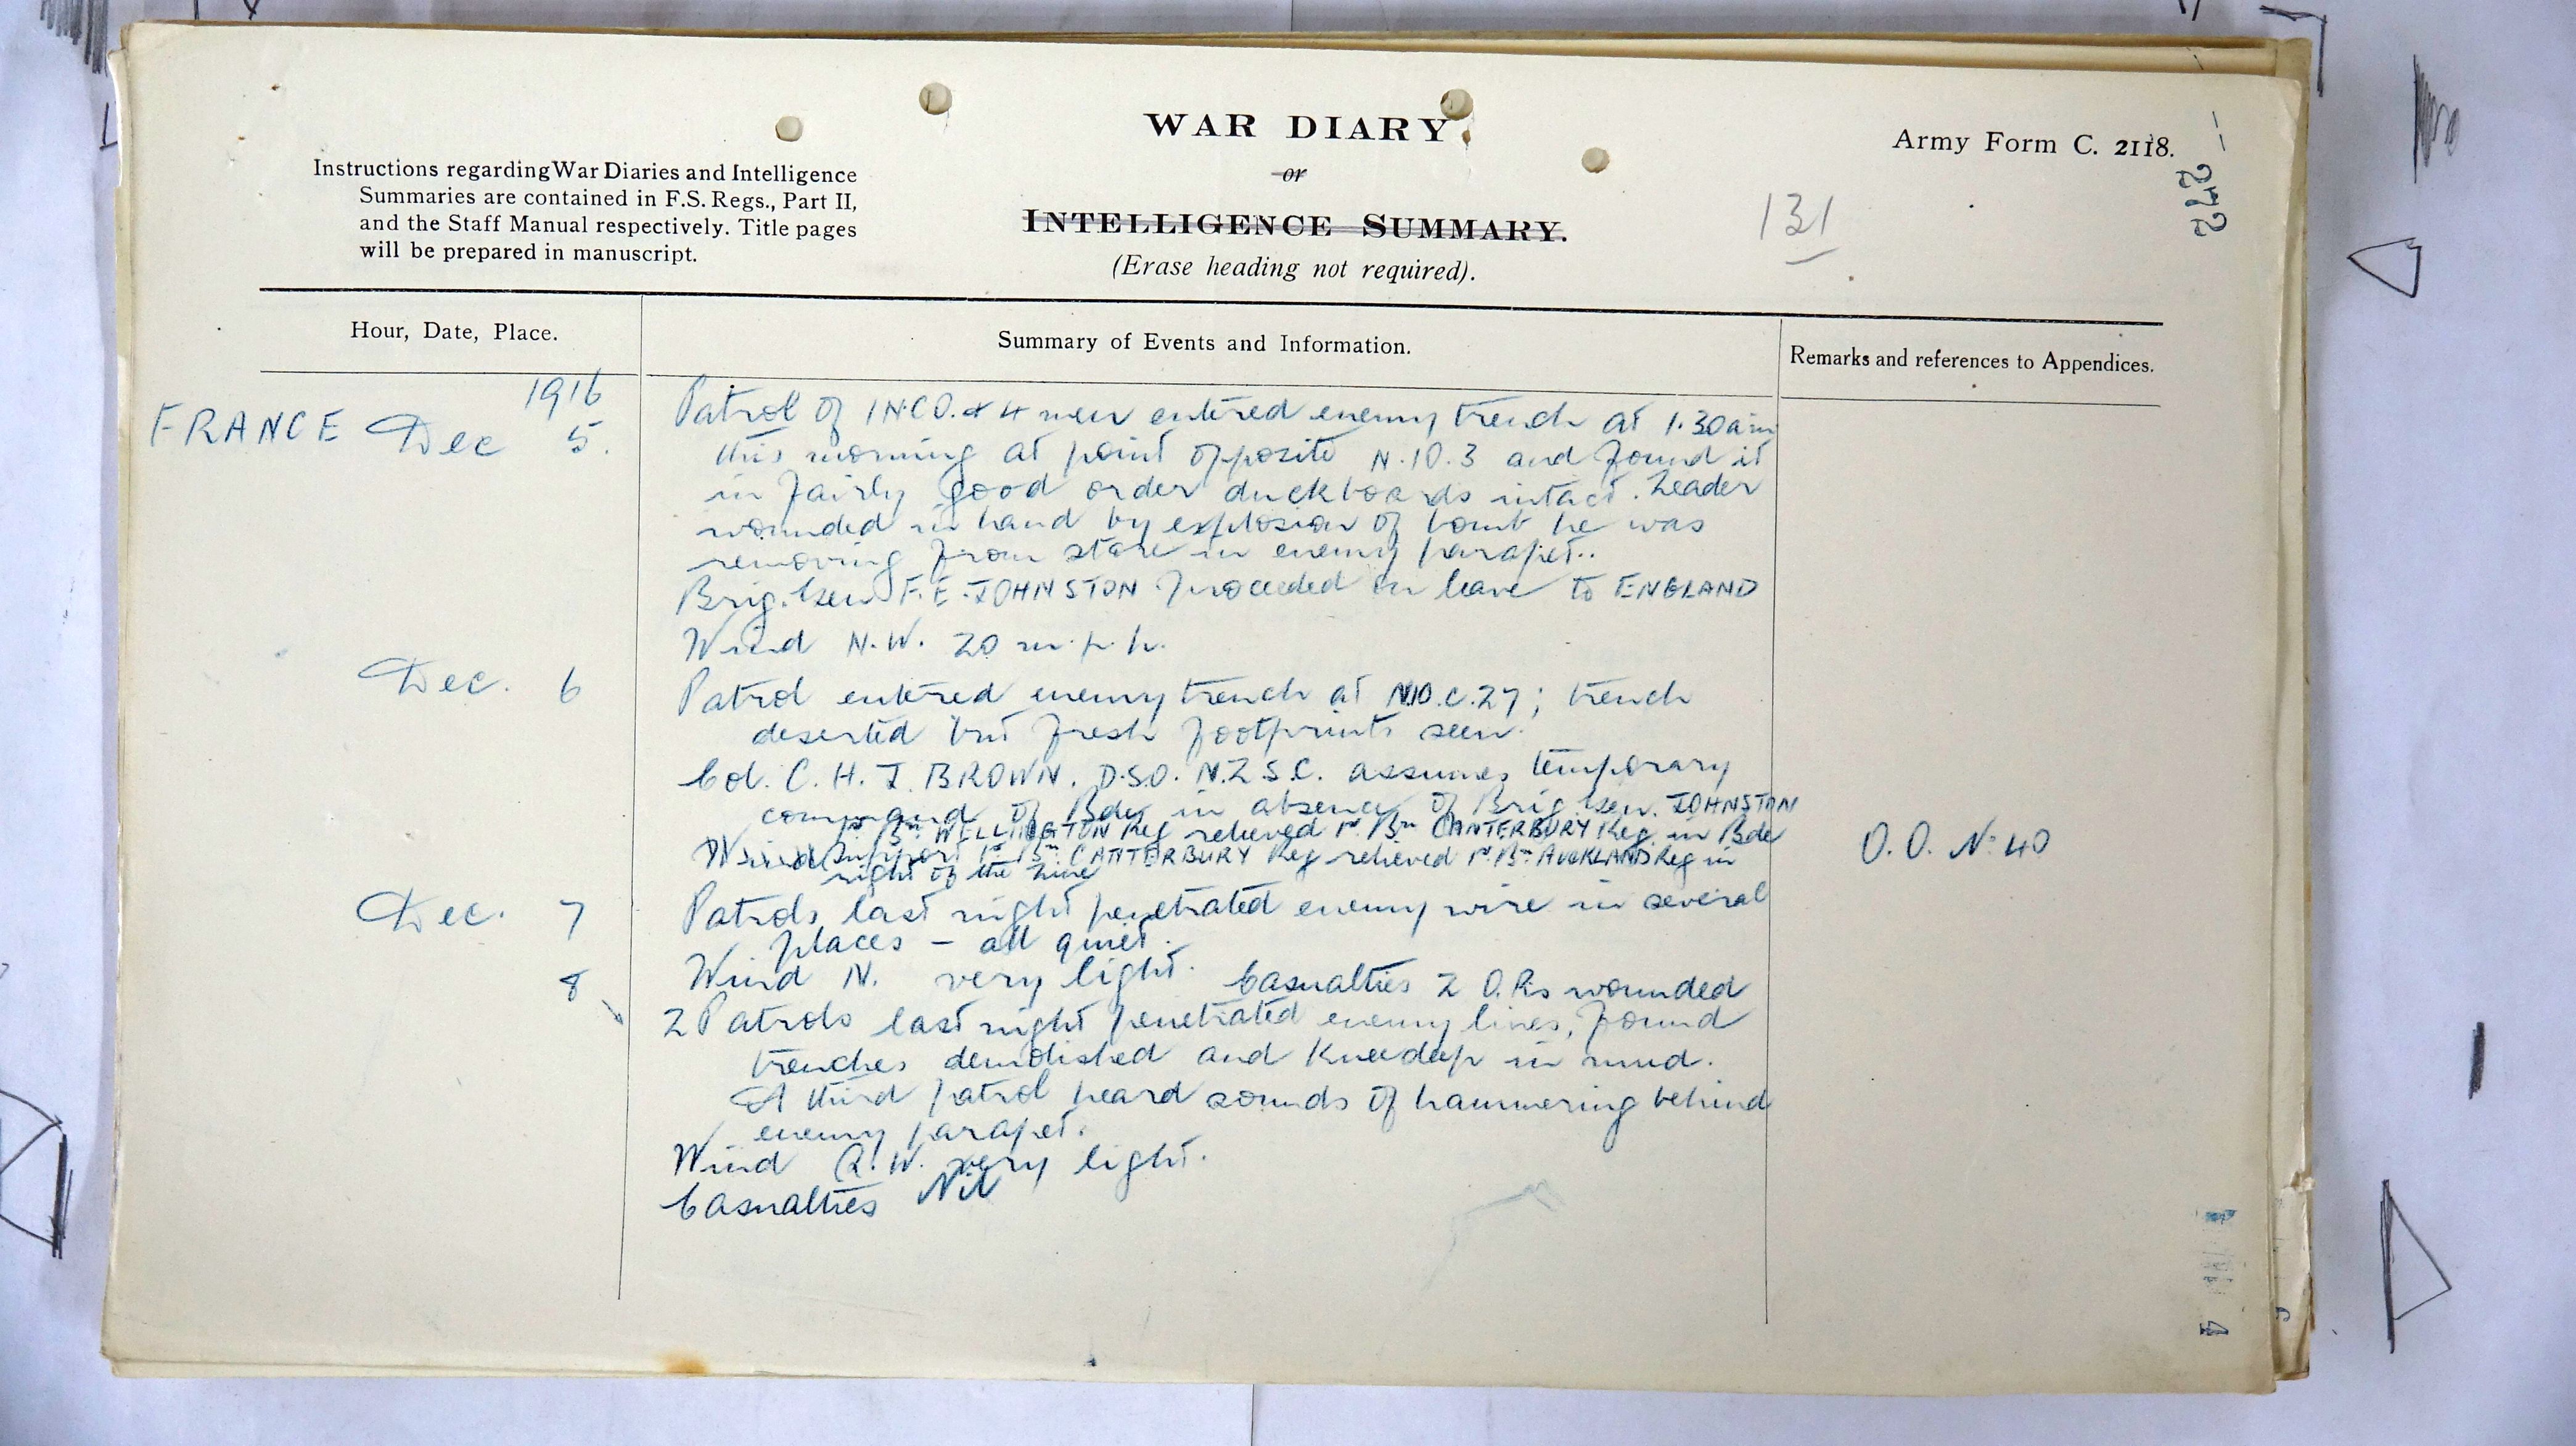 WAR DIARY
or
INTELLIGENCE SUMMARY.
(Erase heading not required).
Instructions regarding War Diaries and Intelligence
Summaries are contained in F.S. Regs., Part II,
and the Staff Manual respectively. Title pages
will be prepared in manuscript.
Army Form C. 2118.
272
131
Hour, Date, Place.
Summary of Events and Information.
Remarks and references to Appendices.
1916
FRANCE Dec 5.
Patrol of 1 N.C.O. & 4 men entered enemy trench at 1.30 am
this morning at point opposite N.10.3 and found it
in fairly good order duckboards intact. Leader
wounded in hand by explosion of bomb he was
removing from stake in enemy parapet..
Brig. Gen F.E. JOHNSTON proceeded on leave to ENGLAND
Wind N.W. 20 m.p.h.
Dec. 6
Patrol entered enemy trench at N10.c.27; trench
deserted but fresh footprints seen.
Col. C. H. J. BROWN. D.S.O. N.Z.S.C. assumes temporary
command of Bde in absence of Brig. Gen. JOHNSTON
1st Bn WELLINGTON Reg relieved 1st Bn CANTERBURY Reg. in Bde
Support 1st Bn. CANTERBURY Reg relieved 1st Bn AUCKLAND Reg in
right of the Line
O.O. No 40
Dec. 7
Patrols last night penetrated enemy wire in several
places - all quiet.
Wind N. very light. Casualties 2 O.Rs wounded
8
2 Patrols last night penetrated enemy lines, found
trenches demolished and kneedeep in mud.
A third patrol heard sounds of hammering behind
enemy parapet.
Wind S.W. very light.
Casualties Nil
4